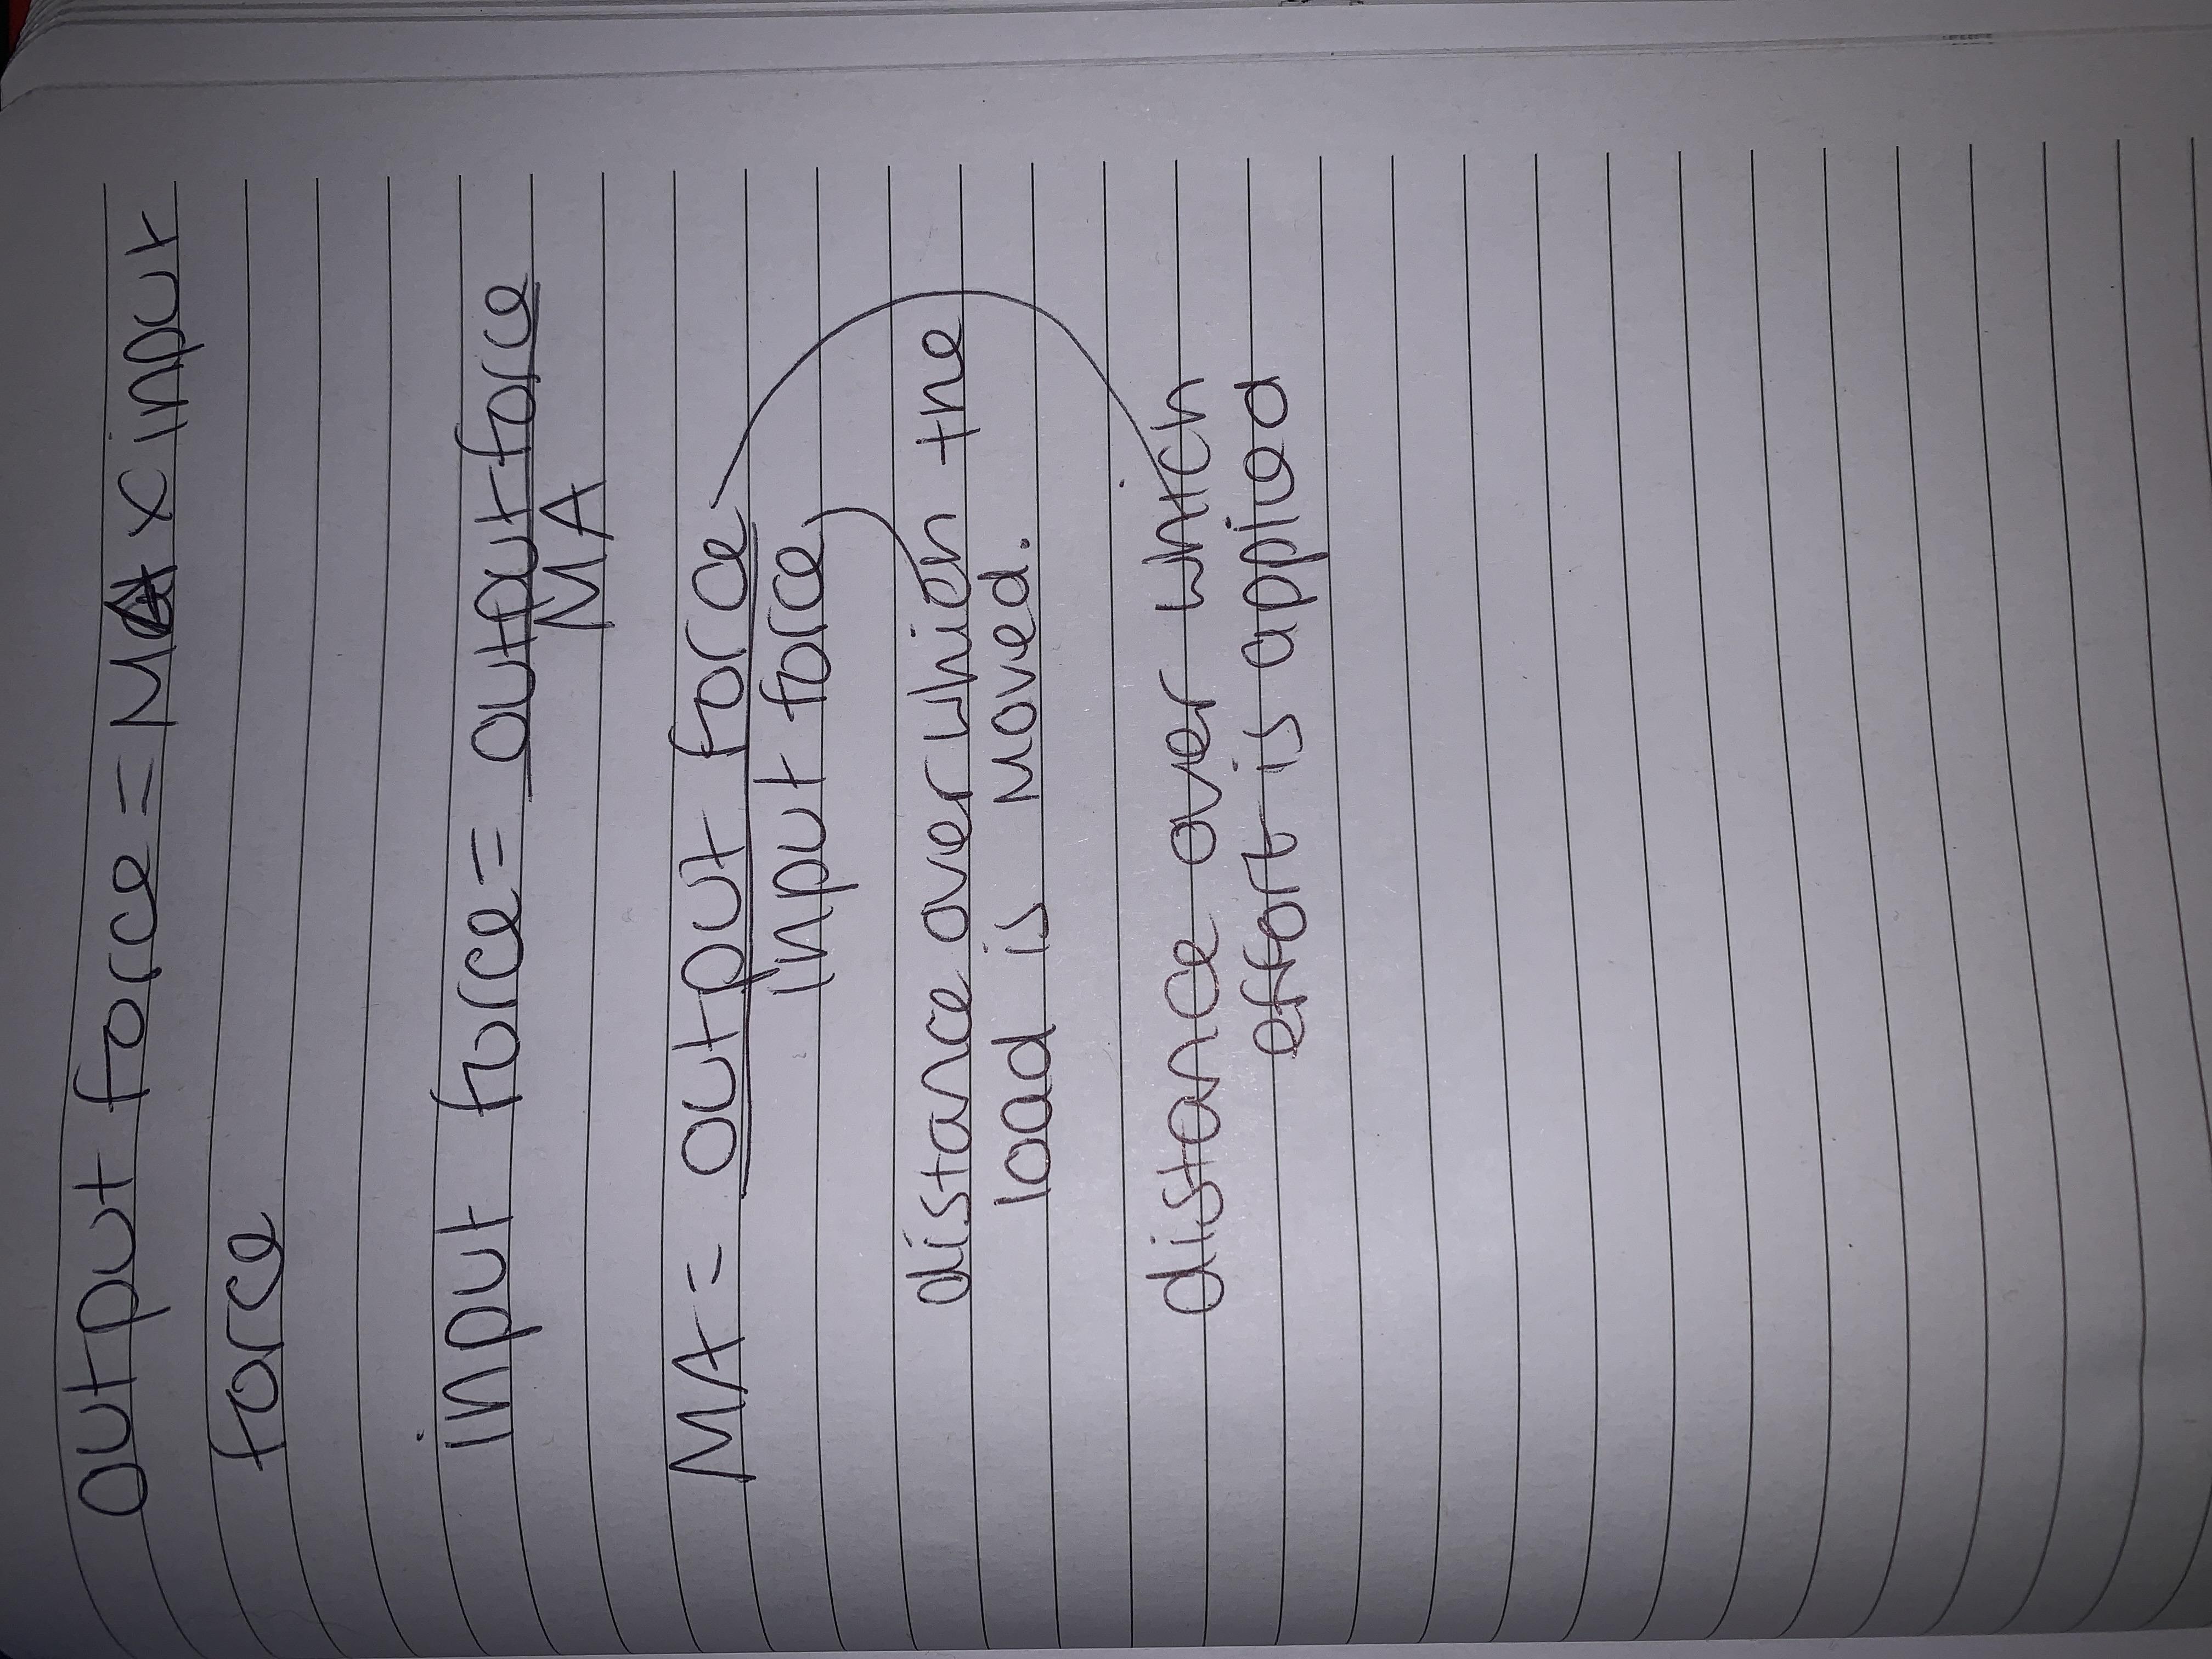 output force = MA x input
force
input force = output force
MA
MA = output force
input force
distance over which the
load is moved.
distance over which
effort is applied